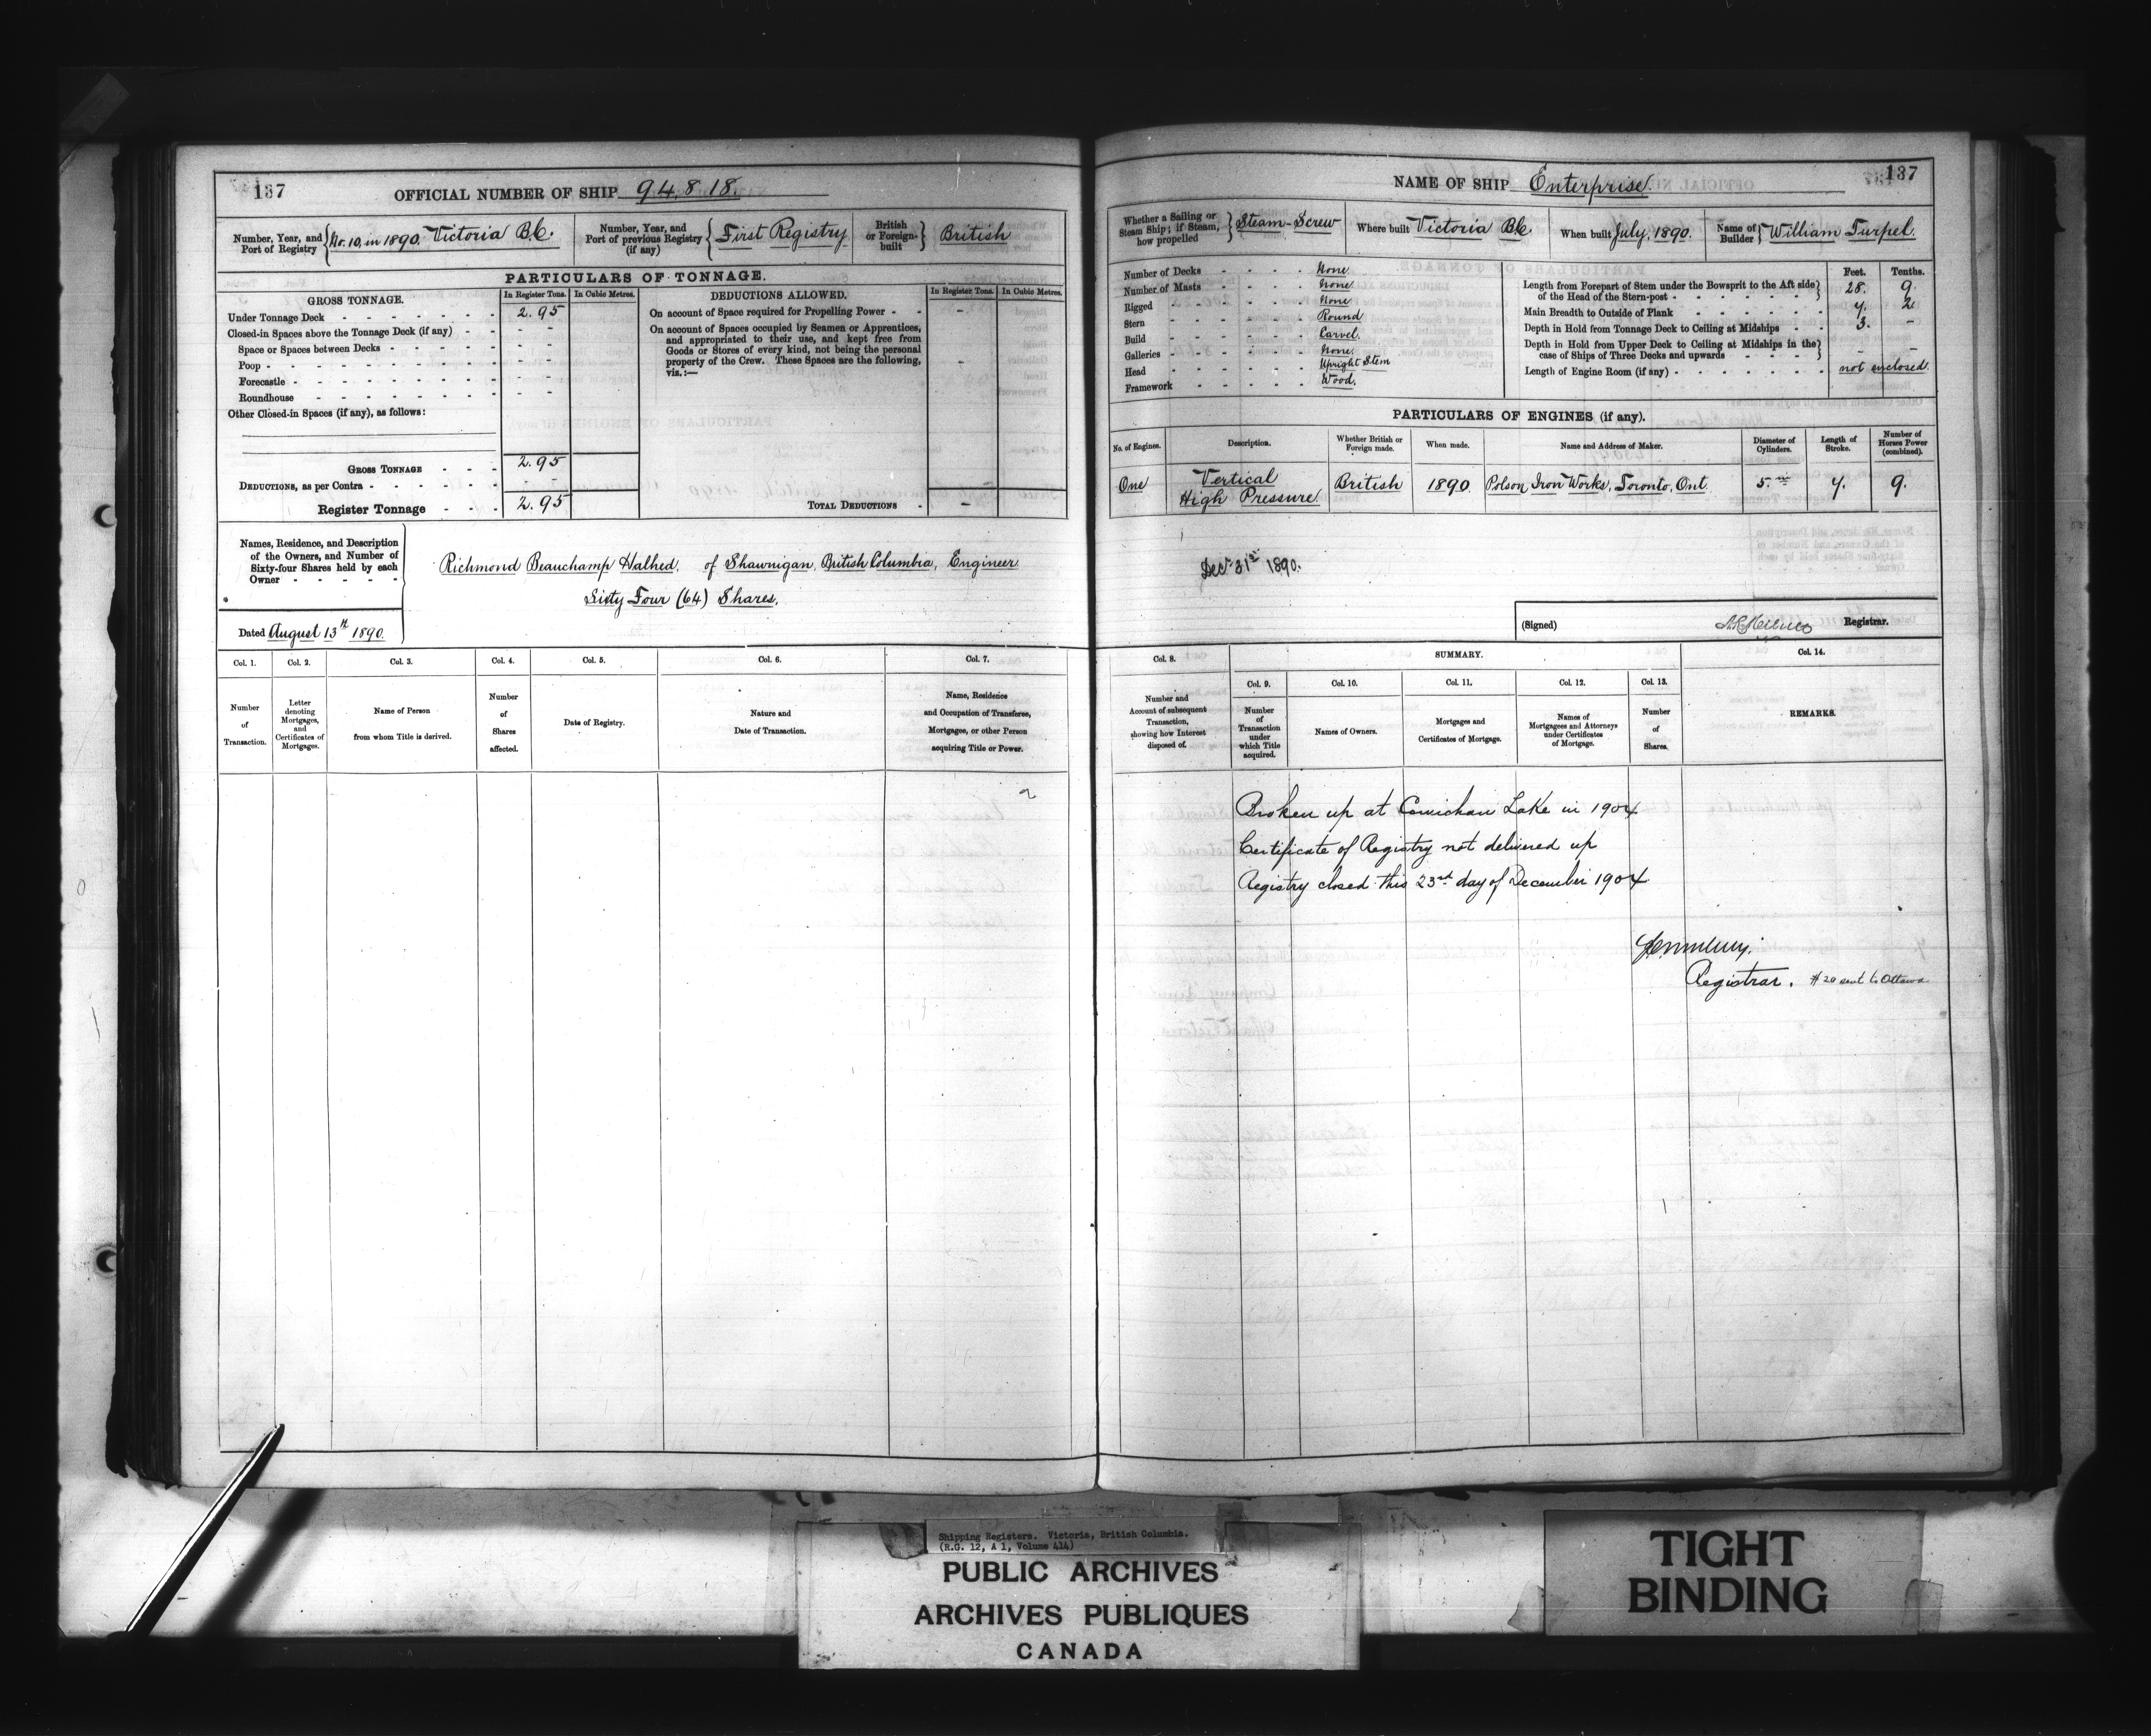 137
OFFICIAL NUMBER OF SHIP 94,818.
Number, Year, and Port of Registry No. 10, in 1890. Victoria B.C.
Number, Year, and Port of previous Registry (if any) First Registry
British or Foreign-built British
PARTICULARS OF TONNAGE.
GROSS TONNAGE. In Register Tons. In Cubic Metres.
Under Tonnage Deck - - - - - - - 2.95
Closed-in Spaces above the Tonnage Deck (if any) - - - -
Space or Spaces between Decks - - - - - - -
Poop - - - - - - - - - -
Forecastle - - - - - - - - -
Roundhouse - - - - - - - - -
Other Closed-in Spaces (if any), as follows:
GROSS TONNAGE - - - 2.95
DEDUCTIONS, as per Contra - - - - - - - -
Register Tonnage - - - 2.95
DEDUCTIONS ALLOWED. In Register Tons. In Cubic Metres.
On account of Space required for Propelling Power - - -
On account of Spaces occupied by Seamen or Apprentices,
and appropriated to their use, and kept free from
Goods or Stores of every kind, not being the personal
property of the Crew. These Spaces are the following,
viz.:— -
TOTAL DEDUCTIONS - -
Names, Residence, and Description
of the Owners, and Number of
Sixty-four Shares held by each
Owner - - - - -
Richmond Beauchamp Halhed, of Shawnigan, British Columbia, Engineer
Sixty Four (64) Shares.
Dated August 13th 1890.
Col. 1. Col. 2. Col. 3. Col. 4. Col. 5. Col. 6. Col. 7.
Number of Transaction.
Letter denoting Mortgages, and Certificates of Mortgages.
Name of Person from whom Title is derived.
Number of Shares affected.
Date of Registry.
Nature and Date of Transaction.
Name, Residence and Occupation of Transferee, Mortgagee, or other Person acquiring Title or Power.
137
NAME OF SHIP Enterprise.
Whether a Sailing or Steam Ship; if Steam, how propelled Steam-Screw
Where built Victoria B.C.
When built July, 1890.
Name of Builder William Turpel.
Number of Decks - - - - None
Number of Masts - - - - None
Rigged - - - - - None
Stern - - - - - Round
Build - - - - - Carvel.
Galleries - - - - - None.
Head - - - - - Upright Stem
Framework - - - - - Wood.
Feet. Tenths.
Length from Forepart of Stem under the Bowsprit to the Aft side
of the Head of the Stern-post - - - - - - - 28. 9.
Main Breadth to Outside of Plank - - - - - - 7. 2
Depth in Hold from Tonnage Deck to Ceiling at Midships - - 3. -
Depth in Hold from Upper Deck to Ceiling at Midships in the
case of Ships of Three Decks and upwards - - - - - -
Length of Engine Room (if any) - - - - - - - not enclosed.
PARTICULARS OF ENGINES (if any).
No. of Engines. Description. Whether British or Foreign made. When made. Name and Address of Maker. Diameter of Cylinders. Length of Stroke. Number of Horses Power (combined).
One Vertical High Pressure. British 1890 Polson Iron Works, Toronto, Ont. 5.in 7. 9.
Decr. 31st 1890.
(Signed) Registrar.
Col. 8. SUMMARY. Col. 14.
Col. 9. Col. 10. Col. 11. Col. 12. Col. 13.
Number and Account of subsequent Transaction, showing how Interest disposed of.
Number of Transaction under which Title acquired.
Names of Owners.
Mortgages and Certificates of Mortgage.
Names of Mortgagees and Attorneys under Certificates of Mortgage.
Number of Shares.
REMARKS.
Broken up at Cowichan Lake in 1904
Certificate of Registry not delivered up
Registry closed this 23rd day of December 1904
Registrar. #20 sent to Ottawa
Shipping Registers. Victoria, British Columbia.
(R.G. 12, A 1, Volume 414)
PUBLIC ARCHIVES
ARCHIVES PUBLIQUES
CANADA
TIGHT
BINDING